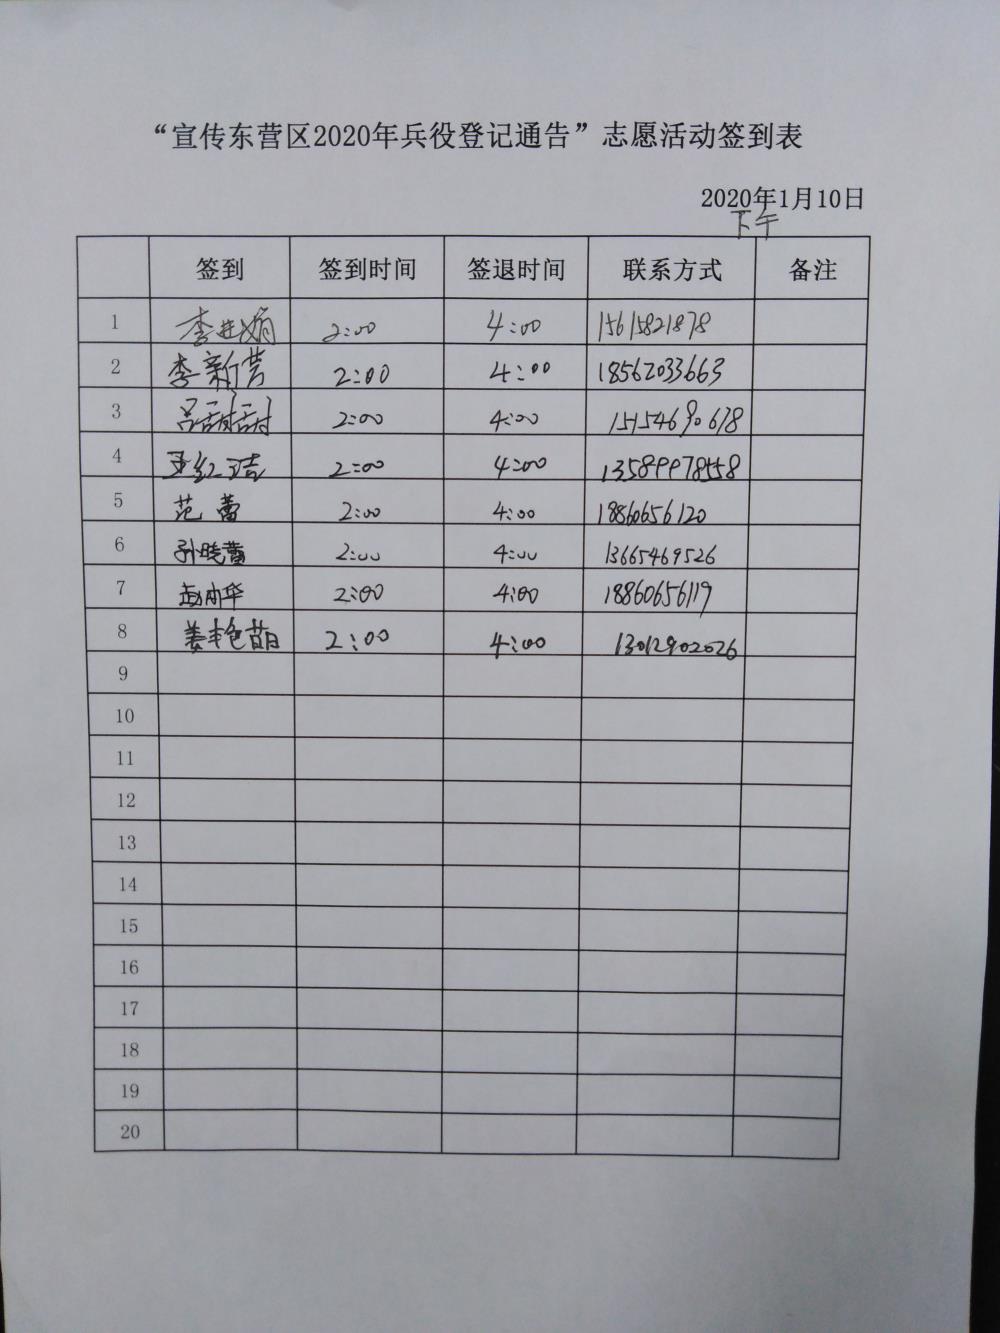 “宣传东营区2020年兵役登记通告”志愿活动签到表
2020年1月10日
下午
签到 签到时间 签退时间 联系方式 备注
1 李进娟 2:00 4:00 15615821878
2 李新芳 2:00 4:00 18562033663
3 吕甜甜 2:00 4:00 15154690678
4 王红洁 2:00 4:00 13589978558
5 范蕾 2:00 4:00 18860656120
6 孙晓蕾 2:00 4:00 13665469526
7 2:00 4:00 18860656119
8 姜艳苗 2:00 4:00 13012902026
9
10
11
12
13
14
15
16
17
18
19
20